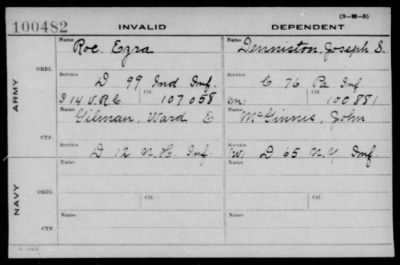 (3-M-3)
100482 INVALID DEPENDENT
ARMY
NAVY
ORIG.
CTF.
ORIG.
CTF.
Name Roe, Ezra
Name Denniston, Joseph S.
Service D 99 Ind Inf.
Service C 76 Pa Inf
I 14 V.R.C. Ctf. 107058
Ctf. 100881
Name Gilman, Ward E
Name McGinnis, John
Service D 12 N.H. Inf.
Service (W) D 65 N.Y. Inf.
Name
Name
Service Ctf.
Service Ctf.
Name
Name
Service
Service